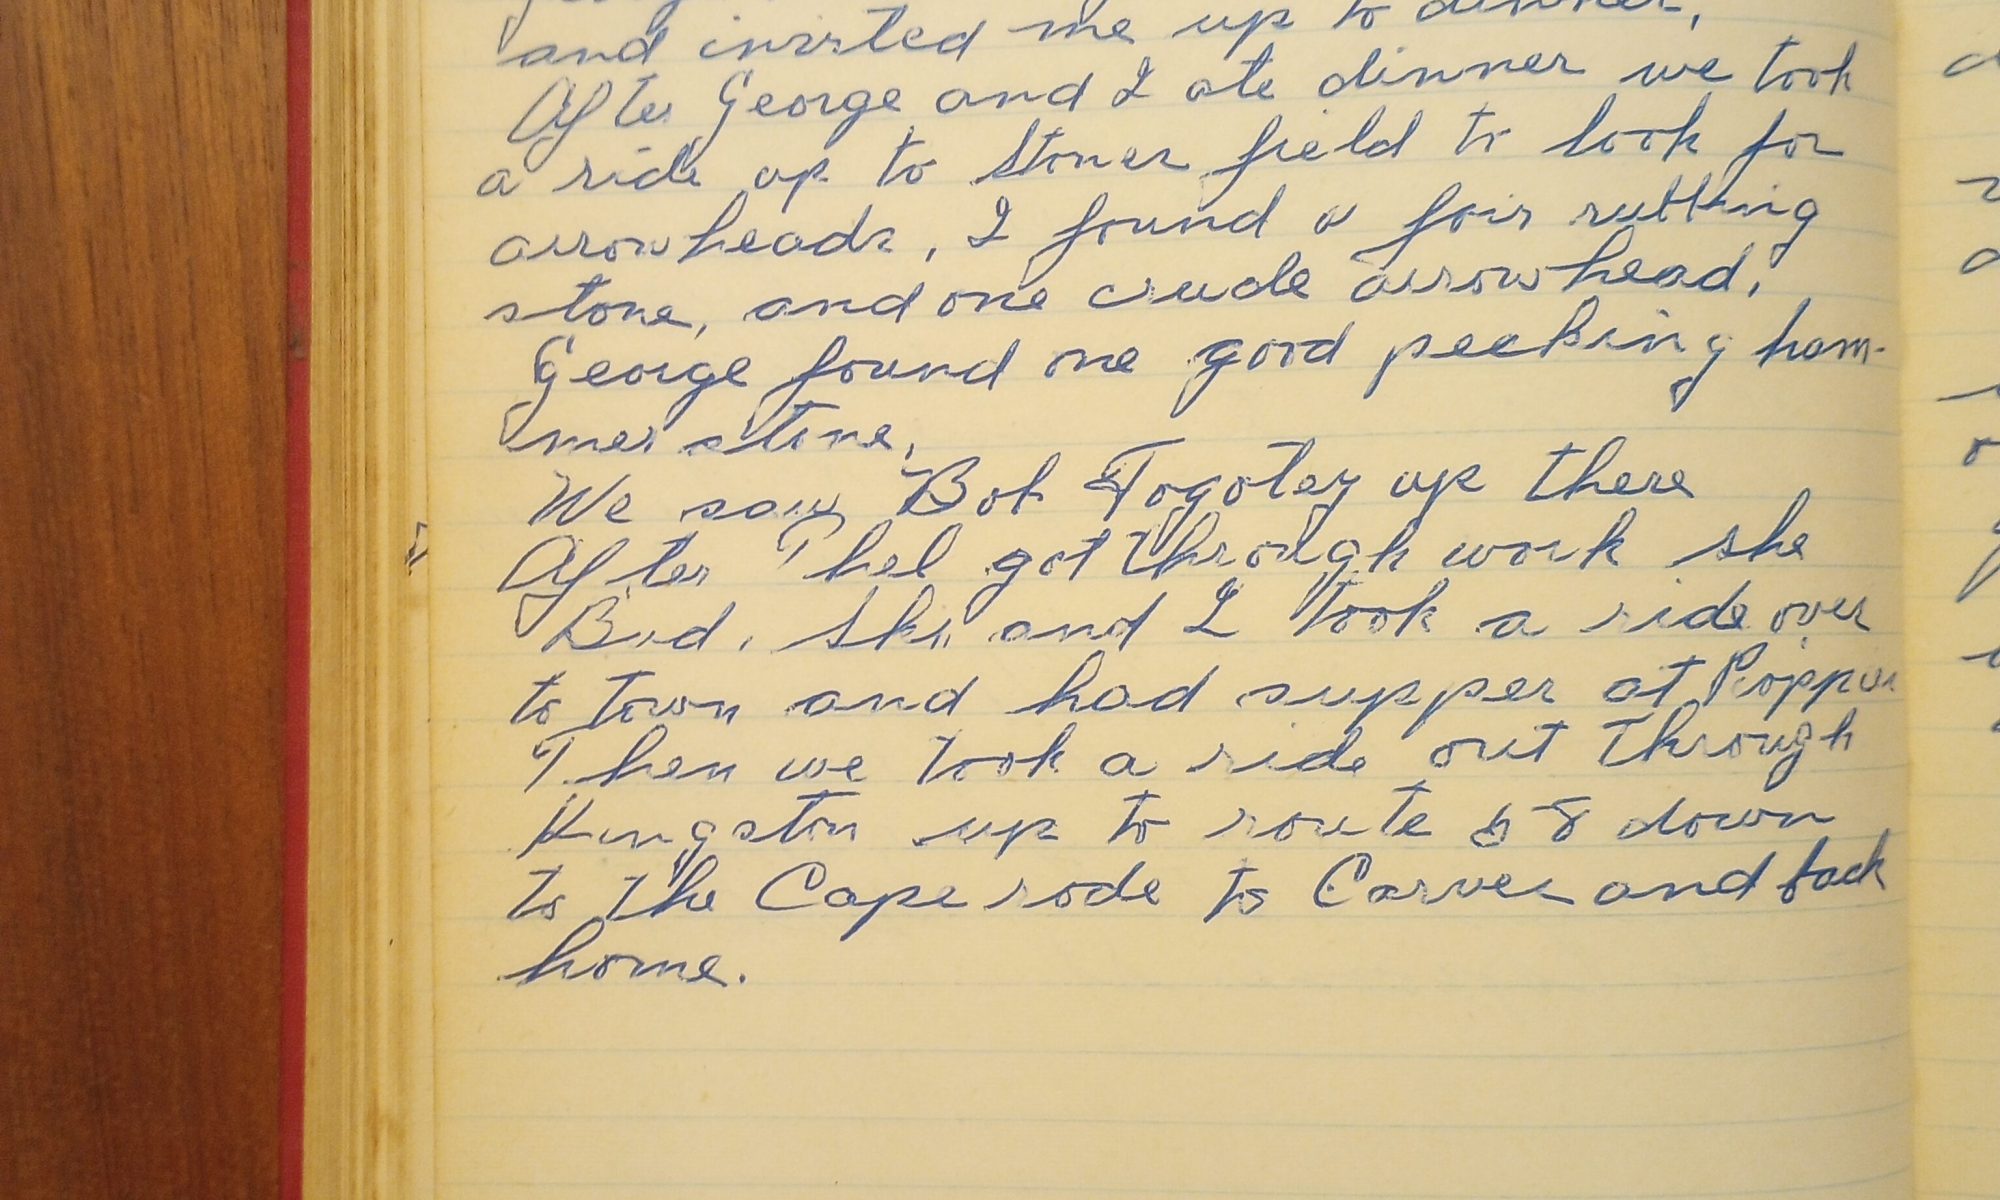 and invited me up to dinner,
After George and I ate dinner we took
a ride up to Stoner field to look for
arrowheads, I found a fair rubbing
stone, and one crude arrowhead,
George found one good pecking ham-
mer stone,
We saw Bob Fogoley up there
After Thel got through work she
Bud, Ski, and I took a ride over
to town and had supper at
Then we took a ride out through
Kingston up to route 58 down
to the Cape rode to Carver and back
home.